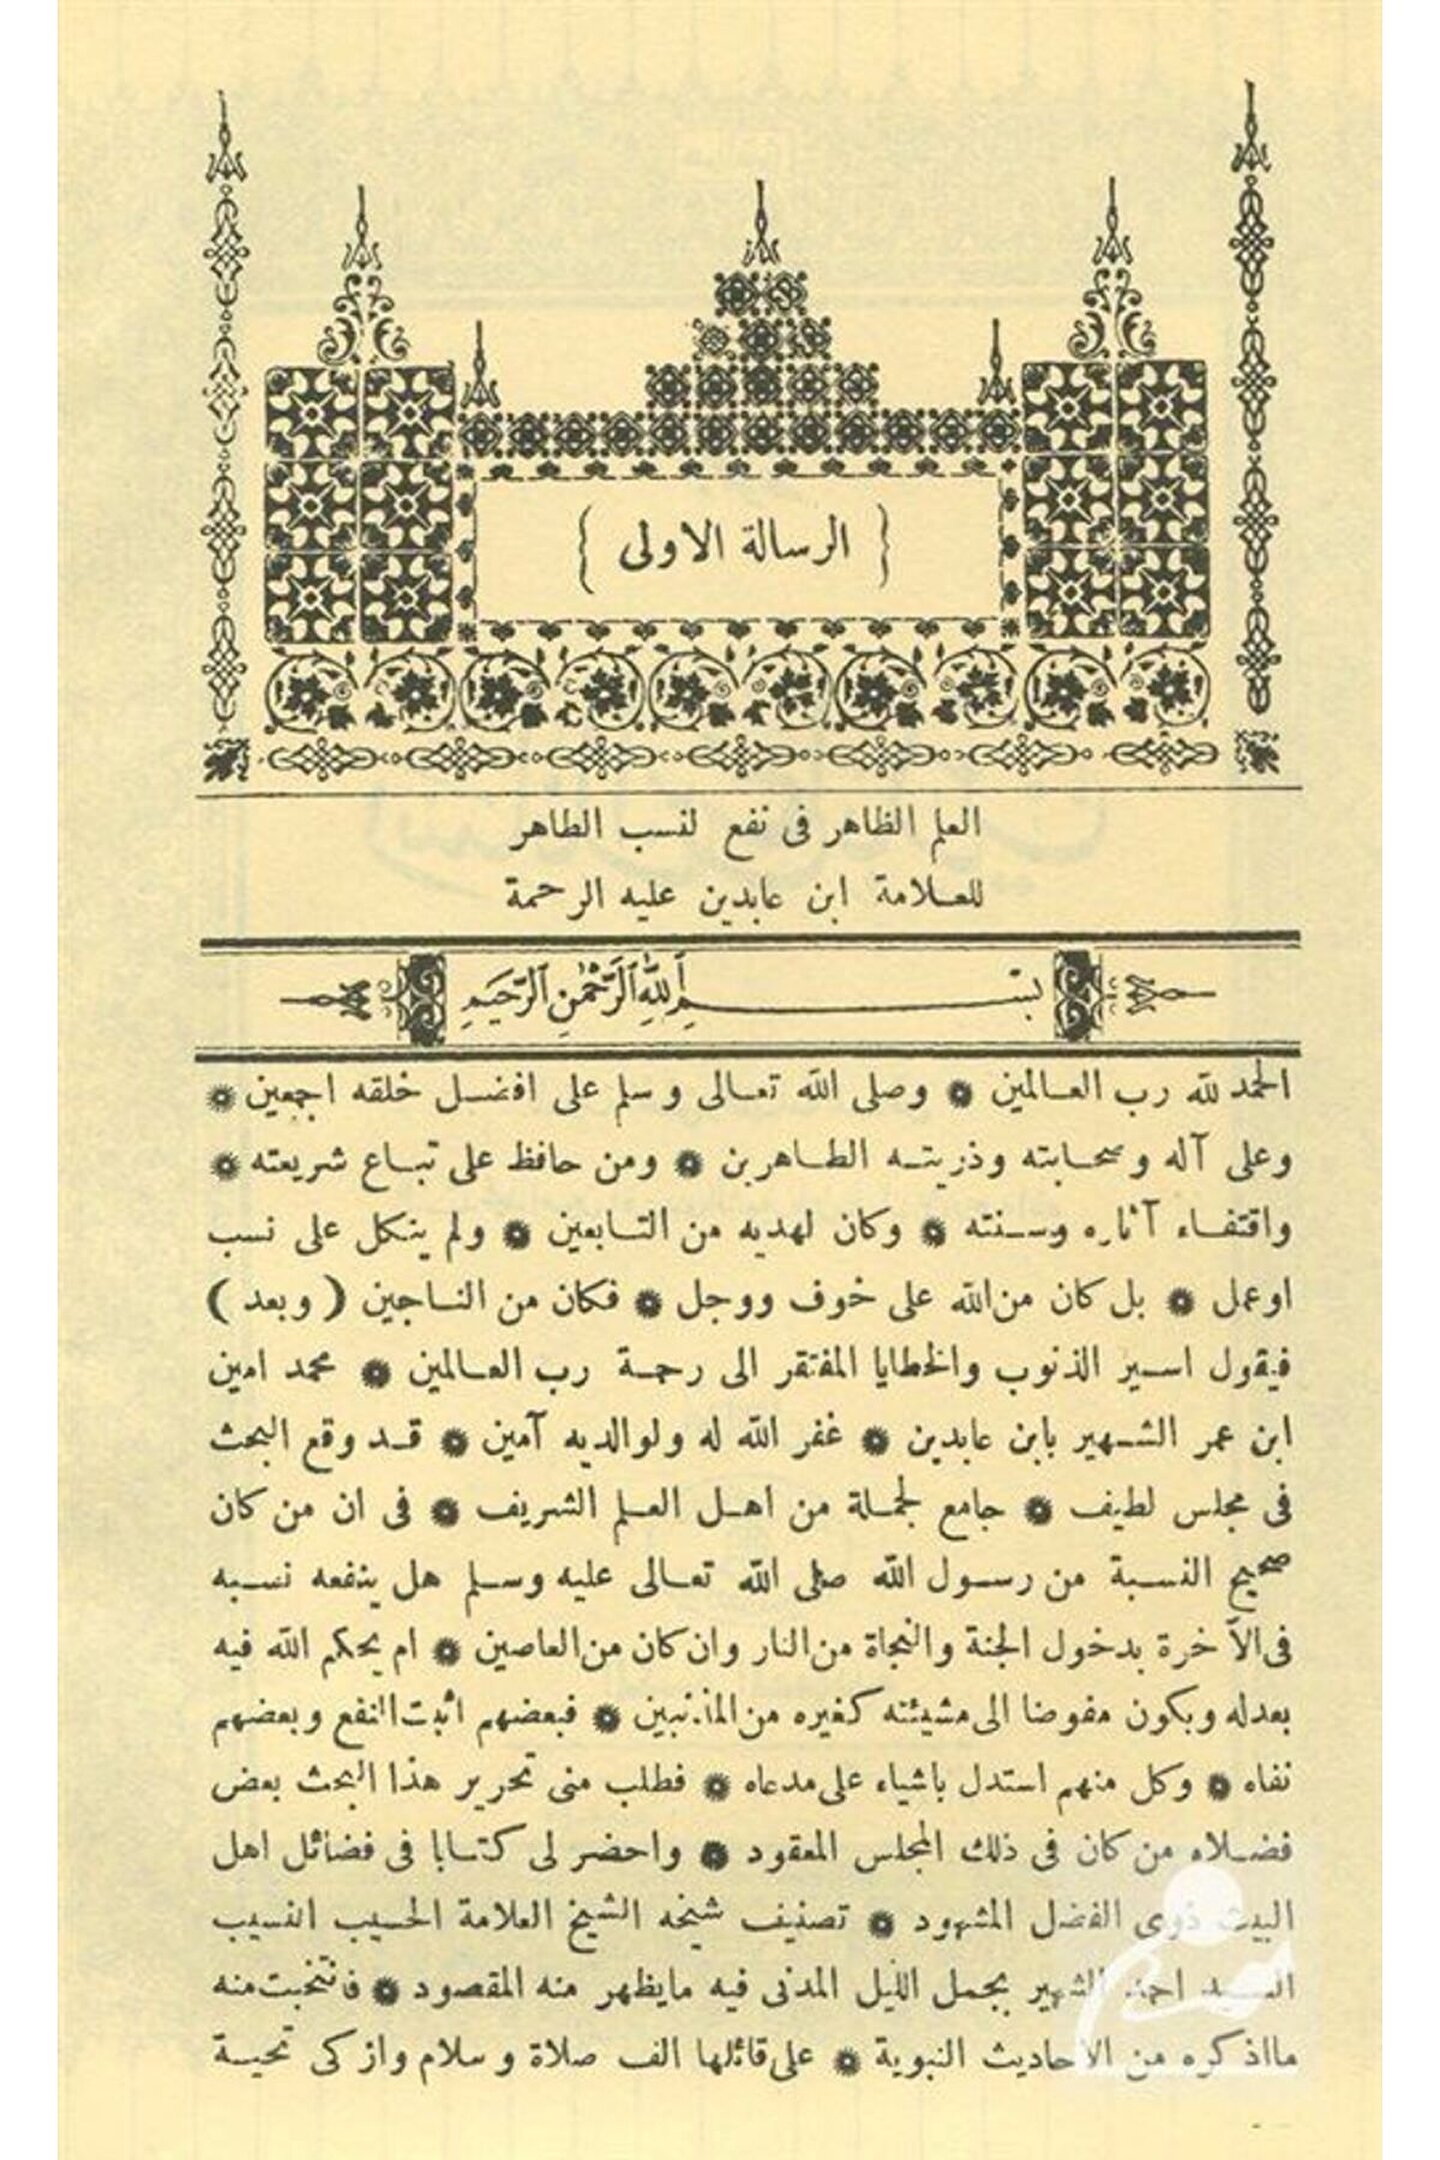 { الرسالة الاولى }
العلم الظاهر فى نفع لنسب الطاهر
للعلامة ابن عابدين عليه الرحمة
بِسْمِ ٱللّٰهِ ٱلرَّحْمٰنِ ٱلرَّحِيمِ
الحمد لله رب العالمين ❁ وصلى الله تعالى وسلم على افضل خلقه اجمعين ❁
وعلى آله وصحابته وذريته الطاهرين ❁ ومن حافظ على تباع شريعته ❁
واقتفاء آثاره وسنته ❁ وكان لهديه من التابعين ❁ ولم يتكل على نسب
اوعمل ❁ بل كان من الله على خوف ووجل ❁ فكان من الناجين ( وبعد )
فيقول اسير الذنوب والخطايا المفتقر الى رحمة رب العالمين ❁ محمد امين
ابن عمر الشهير بابن عابدين ❁ غفر الله له ولوالديه آمين ❁ قد وقع البحث
فى مجلس لطيف ❁ جامع لجملة من اهل العلم الشريف ❁ فى ان من كان
صحيح النسبة من رسول الله صلى الله تعالى عليه وسلم هل ينفعه نسبه
فى الآخرة بدخول الجنة والنجاة من النار وان كان من العاصين ❁ ام يحكم الله فيه
بعدله ويكون مفوضا الى مشيئته كغيره من المذنبين ❁ فبعضهم اثبت النفع وبعضهم
نفاه ❁ وكل منهم استدل باشياء على مدعاه ❁ فطلب منى تحرير هذا البحث بعض
فضلاء من كان فى ذلك المجلس المعقود ❁ واحضر لى كتابا فى فضائل اهل
البيت ذوى الفضل المشهود ❁ تصنيف شيخه الشيخ العلامة الحسيب النسيب
السيد احمد الشهير بجمل الليل المدنى فيه مايظهر منه المقصود ❁ فانتخبت منه
مااذكره من الاحاديث النبوية ❁ على قائلها الف صلاة وسلام وازكى تحية